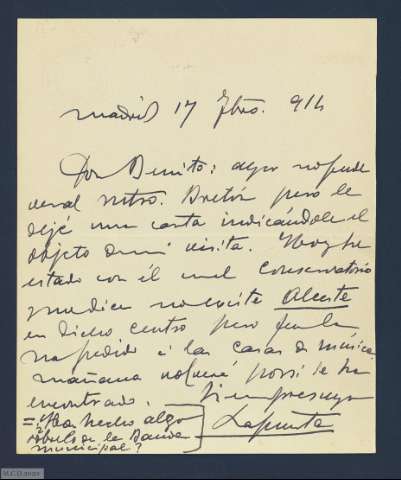 Madrid 17 7bre. 914
Don Benito: ayer no pude
ver al Mtro. Bretón pero le
dejé una carta indicándole el
objeto de mi visita. Hoy he
estado con él en el Conservatorio
y me dice no existe Alceste
en dicho centro pero que la
ha pedido á las casas de música
mañana volveré por si se ha
encontrado. Siempre suyo
=¿Ha hecho algo Lapuerta
Rébulo de la Banda
municipal?
M.C.D. 2022